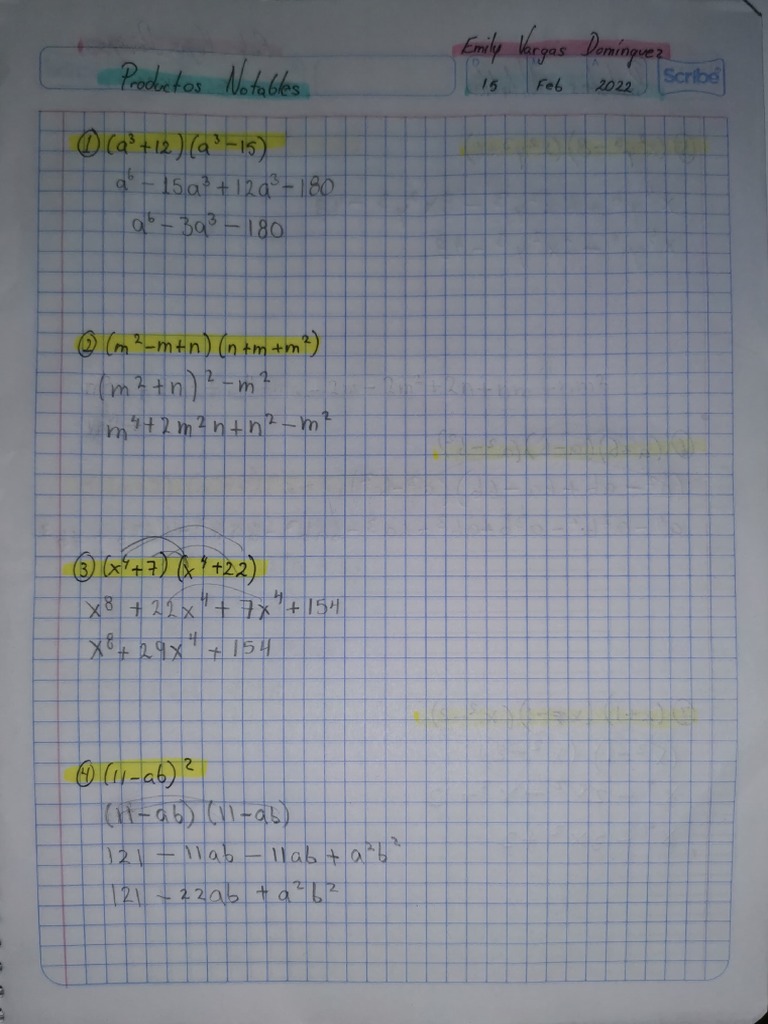 Emily Vargas Domínguez
Productos Notables
15 Feb 2022
Scribe
① (a³+12)(a³-15)
a⁶ - 15a³ + 12a³ - 180
a⁶ - 3a³ - 180
② (m²-m+n)(n+m+m²)
(m²+n)² - m²
m⁴ + 2m²n + n² - m²
③ (x⁴+7)(x⁴+22)
x⁸ + 22x⁴ + 7x⁴ + 154
x⁸ + 29x⁴ + 154
④ (11-ab)²
(11-ab)(11-ab)
121 - 11ab - 11ab + a²b²
121 - 22ab + a²b²